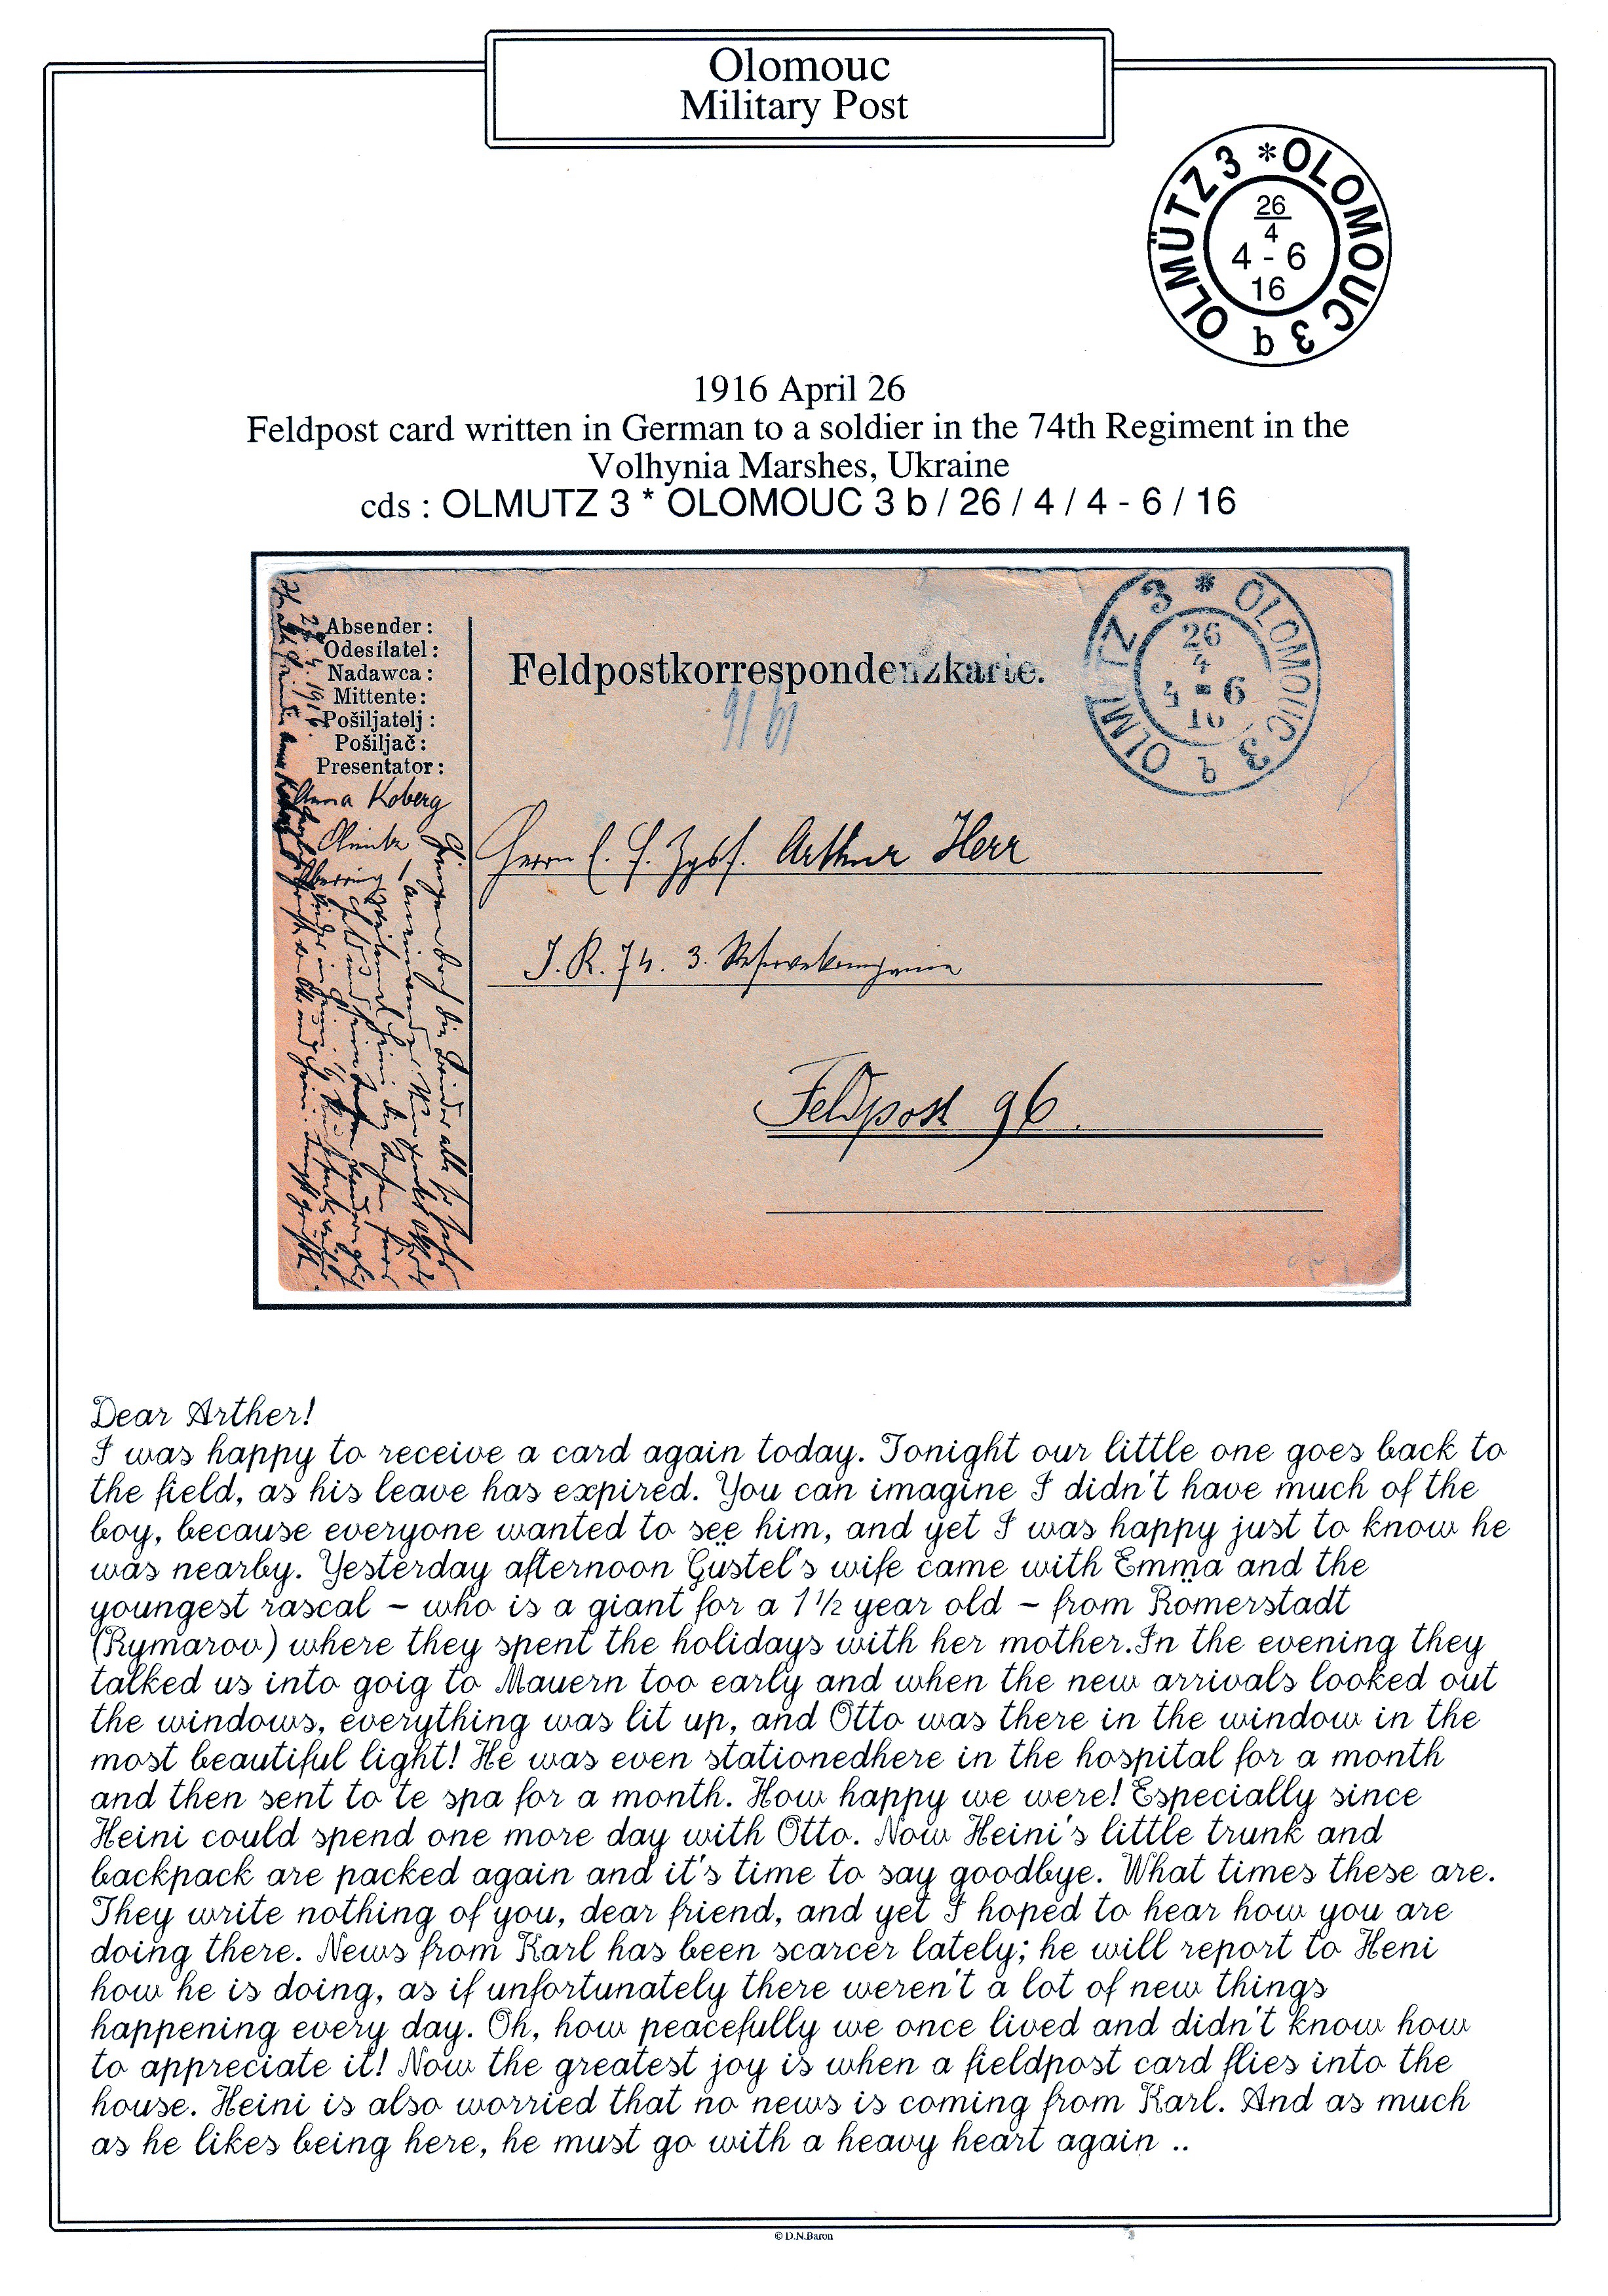 Olomouc
Military Post
OLMÜTZ 3 * OLOMOUC 3 b
26
4
4 - 6
16
1916 April 26
Feldpost card written in German to a soldier in the 74th Regiment in the
Volhynia Marshes, Ukraine
cds : OLMUTZ 3 * OLOMOUC 3 b / 26 / 4 / 4 - 6 / 16
Absender:
Odesílatel:
Nadawca:
Mittente:
Pošiljatelj:
Pošiljač:
Presentator:
Anna Koberg
Olmütz
Feldpostkorrespondenzkarte.
OLMÜTZ 3 * OLOMOUC 3 b
26
4
4 - 6
16
Herrn Arthur Herr
I. R. 74. 3. Reservekompanie
Feldpost 96.
Dear Arther!
I was happy to receive a card again today. Tonight our little one goes back to
the field, as his leave has expired. You can imagine I didn't have much of the
boy, because everyone wanted to see him, and yet I was happy just to know he
was nearby. Yesterday afternoon Güstel's wife came with Emma and the
youngest rascal - who is a giant for a 1½ year old - from Romerstadt
(Rymarov) where they spent the holidays with her mother.In the evening they
talked us into goig to Mauern too early and when the new arrivals looked out
the windows, everything was lit up, and Otto was there in the window in the
most beautiful light! He was even stationedhere in the hospital for a month
and then sent to te spa for a month. How happy we were! Especially since
Heini could spend one more day with Otto. Now Heini's little trunk and
backpack are packed again and it's time to say goodbye. What times these are.
They write nothing of you, dear friend, and yet I hoped to hear how you are
doing there. News from Karl has been scarcer lately; he will report to Heni
how he is doing, as if unfortunately there weren't a lot of new things
happening every day. Oh, how peacefully we once lived and didn't know how
to appreciate it! Now the greatest joy is when a fieldpost card flies into the
house. Heini is also worried that no news is coming from Karl. And as much
as he likes being here, he must go with a heavy heart again ..
© D.N.Baron